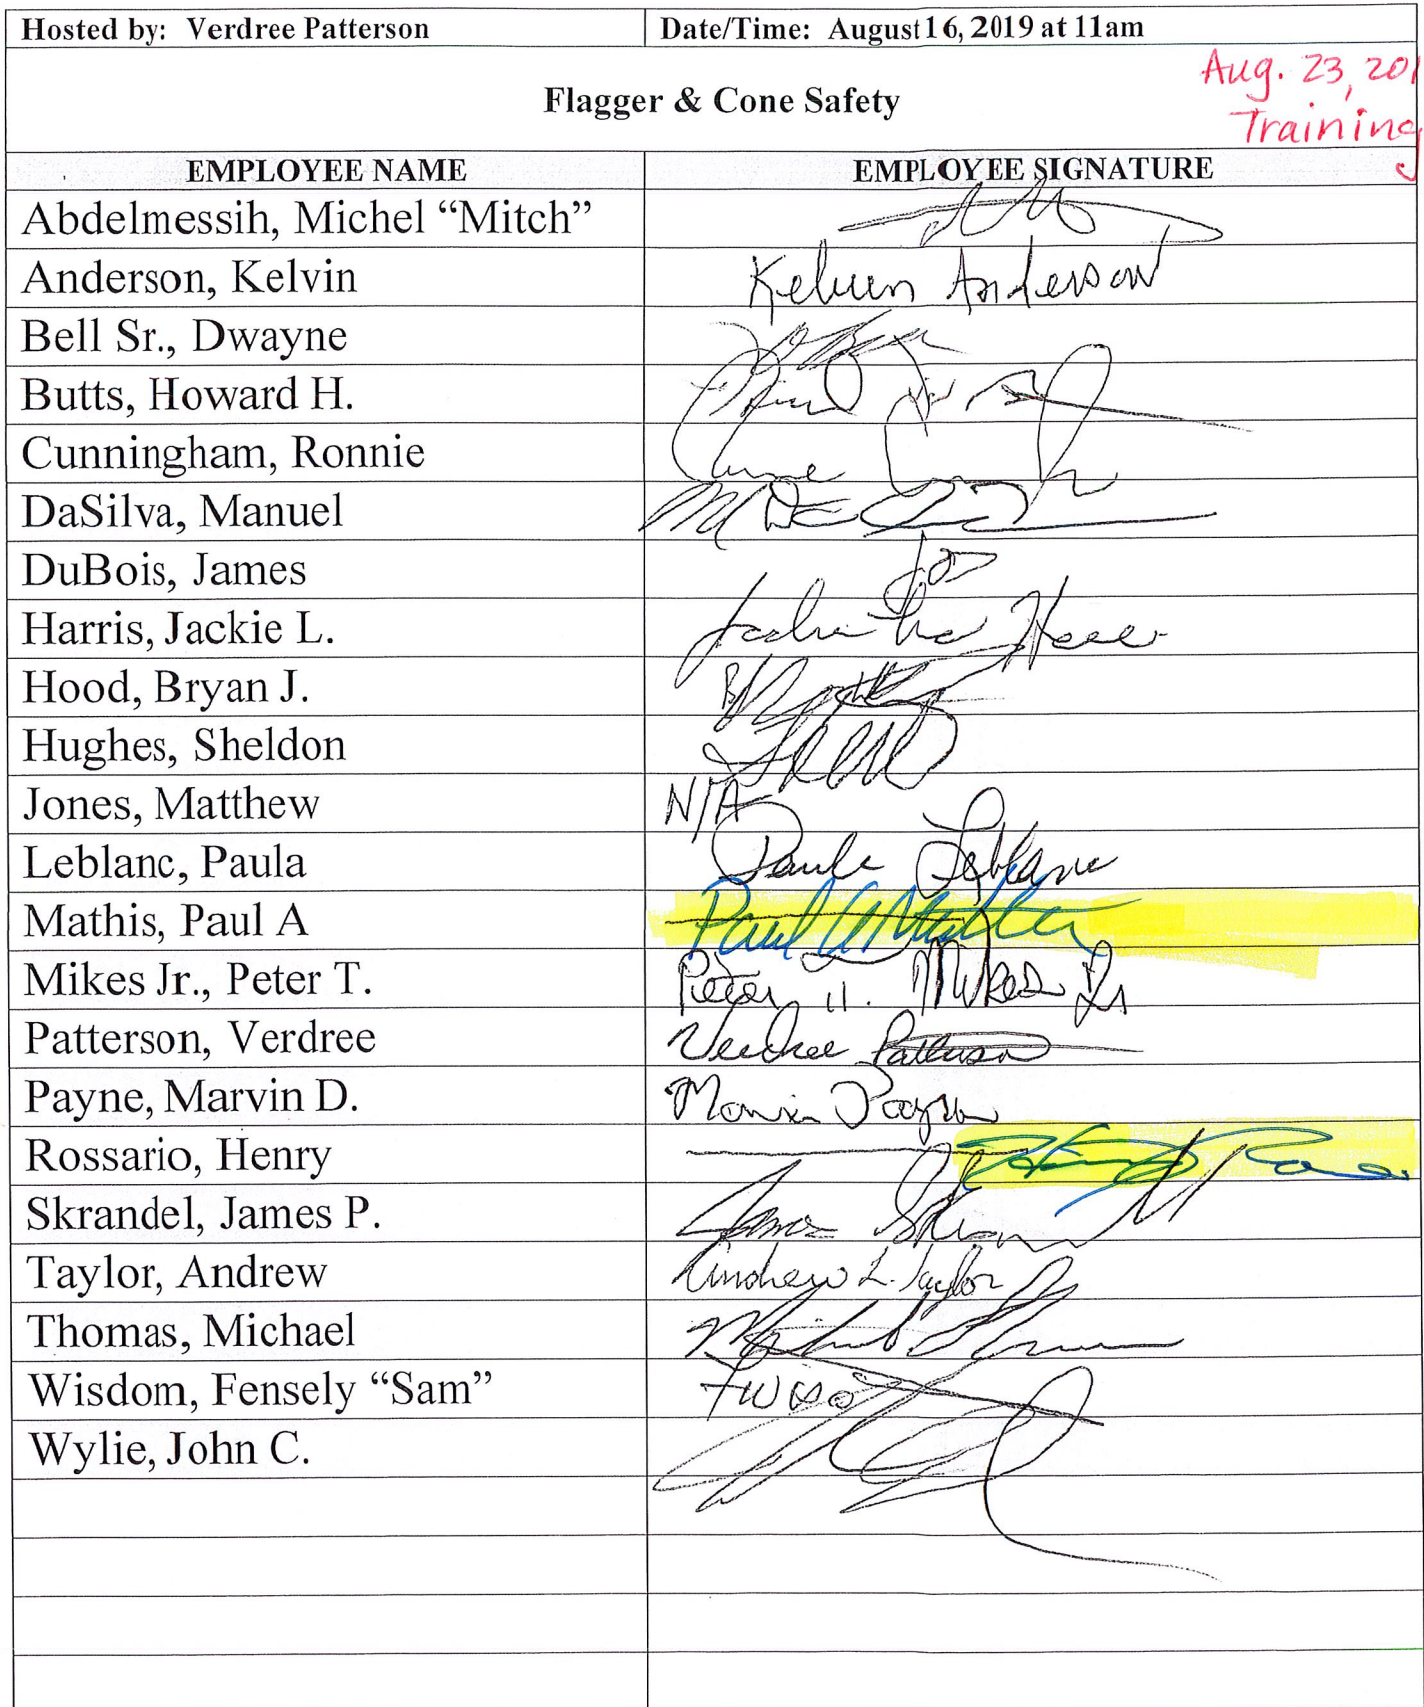 Hosted by: Verdree Patterson Date/Time: August 16, 2019 at 11am
Aug. 23, 201
Flagger & Cone Safety
Training
EMPLOYEE NAME EMPLOYEE SIGNATURE
Abdelmessih, Michel “Mitch”
Anderson, Kelvin Kelvin Anderson
Bell Sr., Dwayne
Butts, Howard H.
Cunningham, Ronnie
DaSilva, Manuel
DuBois, James
Harris, Jackie L.
Hood, Bryan J.
Hughes, Sheldon
Jones, Matthew N/A
Leblanc, Paula Paula Leblanc
Mathis, Paul A Paul A Mathis
Mikes Jr., Peter T. Peter Mikes Jr
Patterson, Verdree Verdree Patterson
Payne, Marvin D. Marvin Payne
Rossario, Henry
Skrandel, James P.
Taylor, Andrew Andrew L. Taylor
Thomas, Michael
Wisdom, Fensely “Sam”
Wylie, John C.